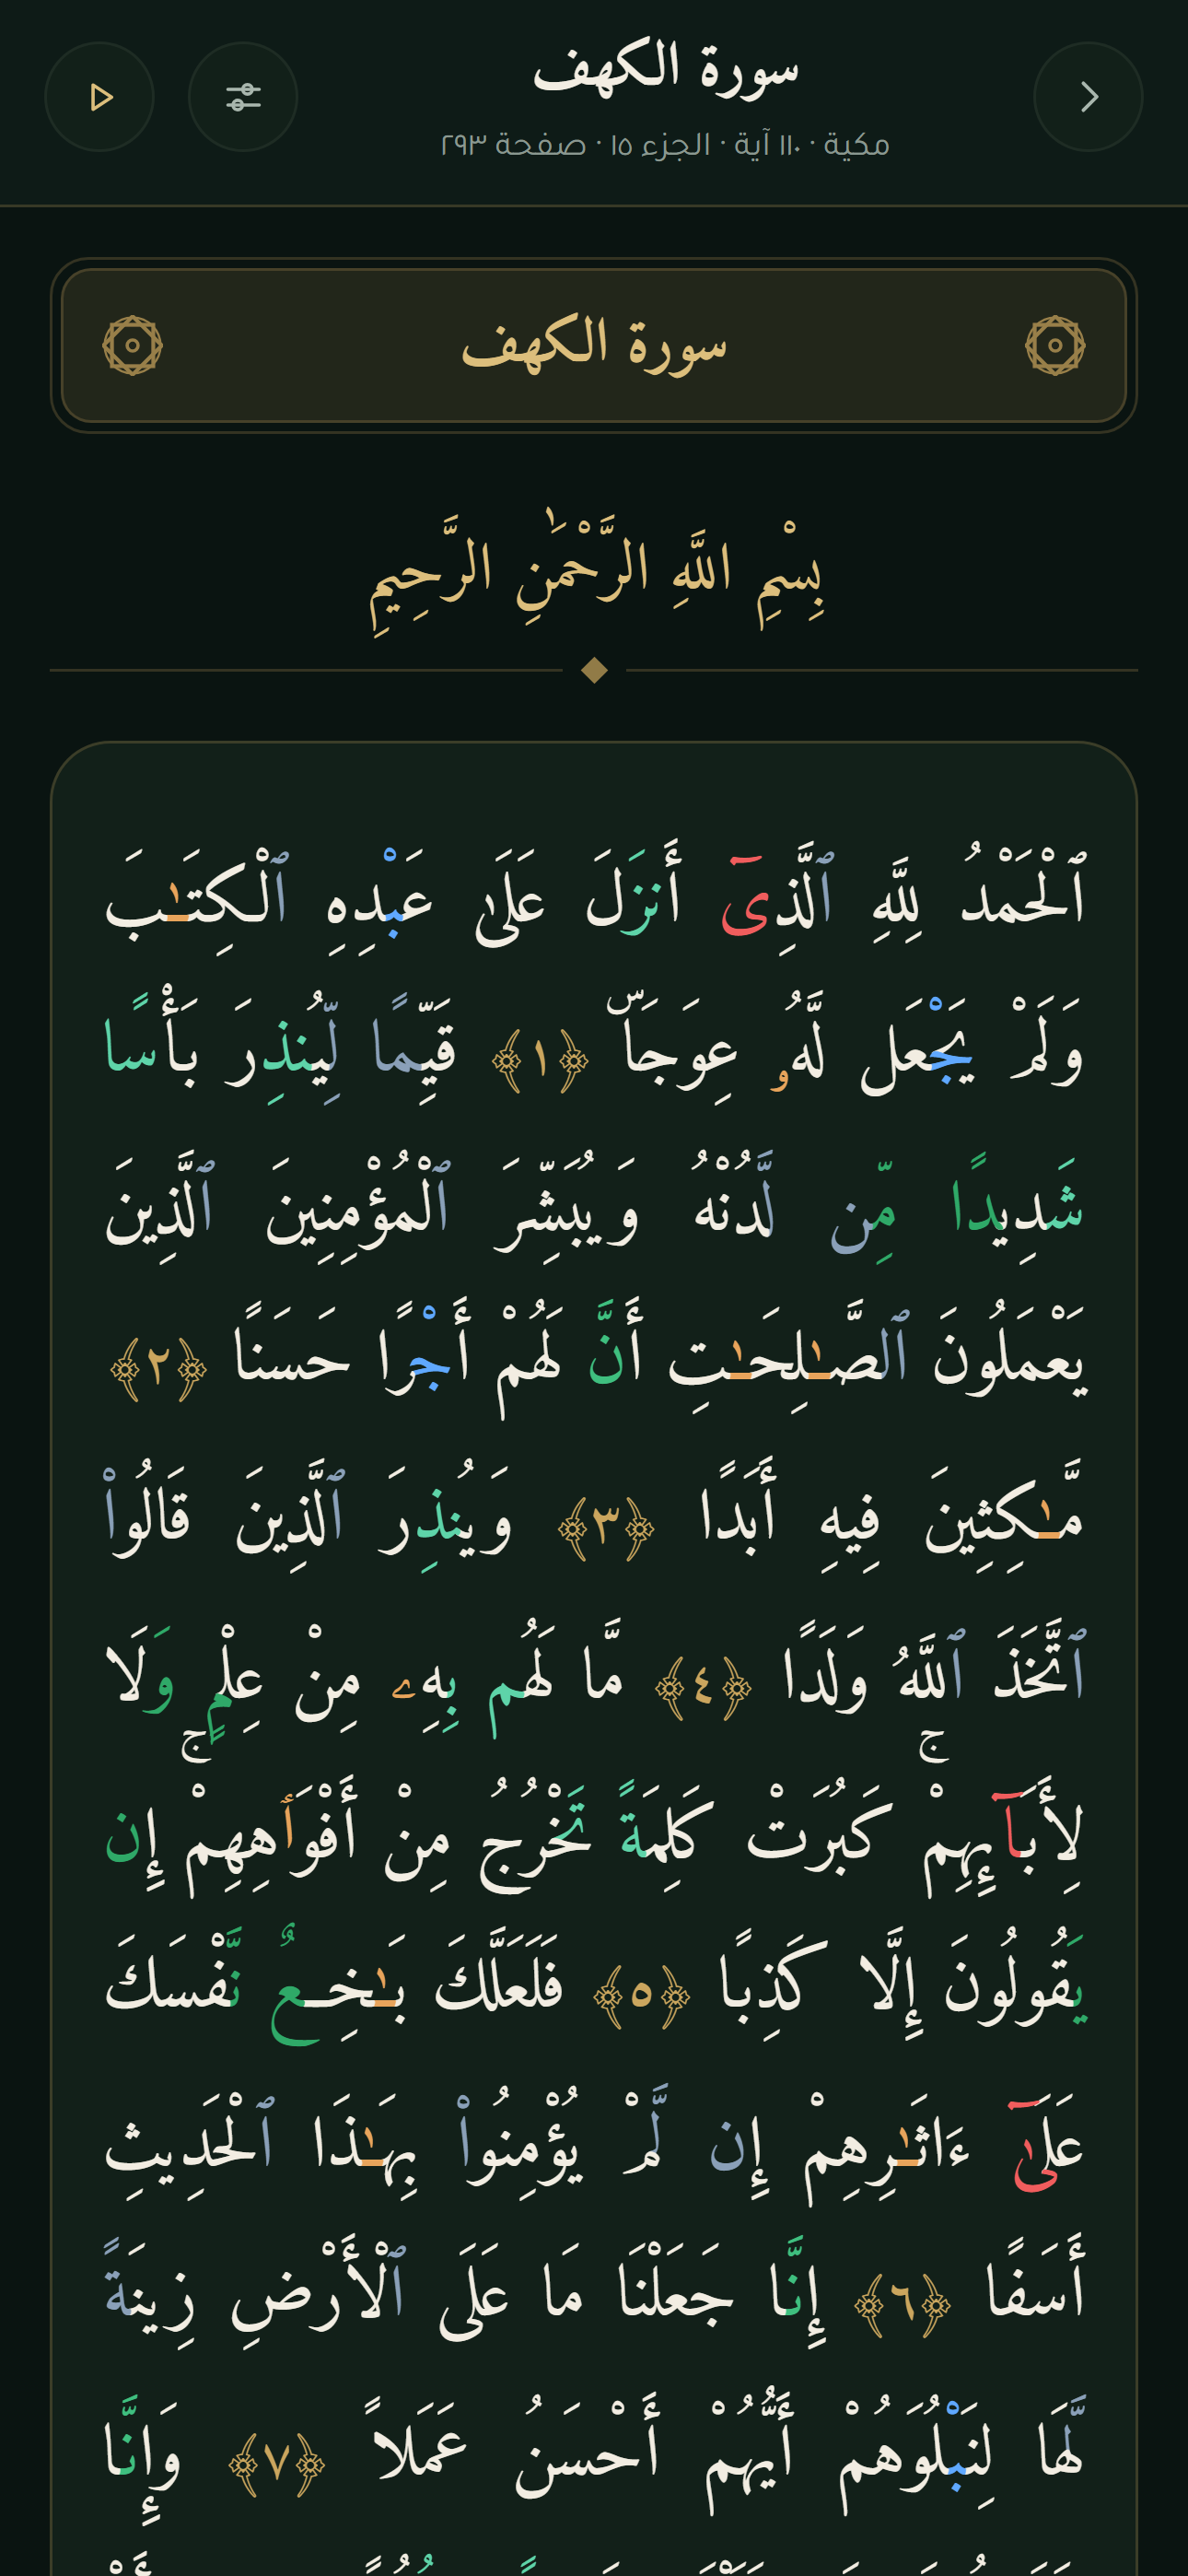 سورة الكهف
مكية · ١١٠ آية · الجزء ١٥ · صفحة ٢٩٣
سورة الكهف
بِسْمِ اللَّهِ الرَّحْمَٰنِ الرَّحِيمِ
ٱلْحَمْدُ لِلَّهِ ٱلَّذِىٓ أَنزَلَ عَلَىٰ عَبْدِهِ ٱلْكِتَـٰبَ
وَلَمْ يَجْعَل لَّهُۥ عِوَجَاۜ ﴿١﴾ قَيِّمًا لِّيُنذِرَ بَأْسًا
شَدِيدًا مِّن لَّدُنْهُ وَيُبَشِّرَ ٱلْمُؤْمِنِينَ ٱلَّذِينَ
يَعْمَلُونَ ٱلصَّـٰلِحَـٰتِ أَنَّ لَهُمْ أَجْرًا حَسَنًا ﴿٢﴾
مَّـٰكِثِينَ فِيهِ أَبَدًا ﴿٣﴾ وَيُنذِرَ ٱلَّذِينَ قَالُوا۟
ٱتَّخَذَ ٱللَّهُ وَلَدًا ﴿٤﴾ مَّا لَهُم بِهِۦ مِنْ عِلْمٍ وَلَا
لِأَبَآئِهِمْۚ كَبُرَتْ كَلِمَةً تَخْرُجُ مِنْ أَفْوَٲهِهِمْۚ إِن
يَقُولُونَ إِلَّا كَذِبًا ﴿٥﴾ فَلَعَلَّكَ بَـٰخِـعٌ نَّفْسَكَ
عَلَىٰٓ ءَاثَـٰرِهِمْ إِن لَّمْ يُؤْمِنُوا۟ بِهَـٰذَا ٱلْحَدِيثِ
أَسَفًا ﴿٦﴾ إِنَّا جَعَلْنَا مَا عَلَى ٱلْأَرْضِ زِينَةً
لَّهَا لِنَبْلُوَهُمْ أَيُّهُمْ أَحْسَنُ عَمَلاً ﴿٧﴾ وَإِنَّا